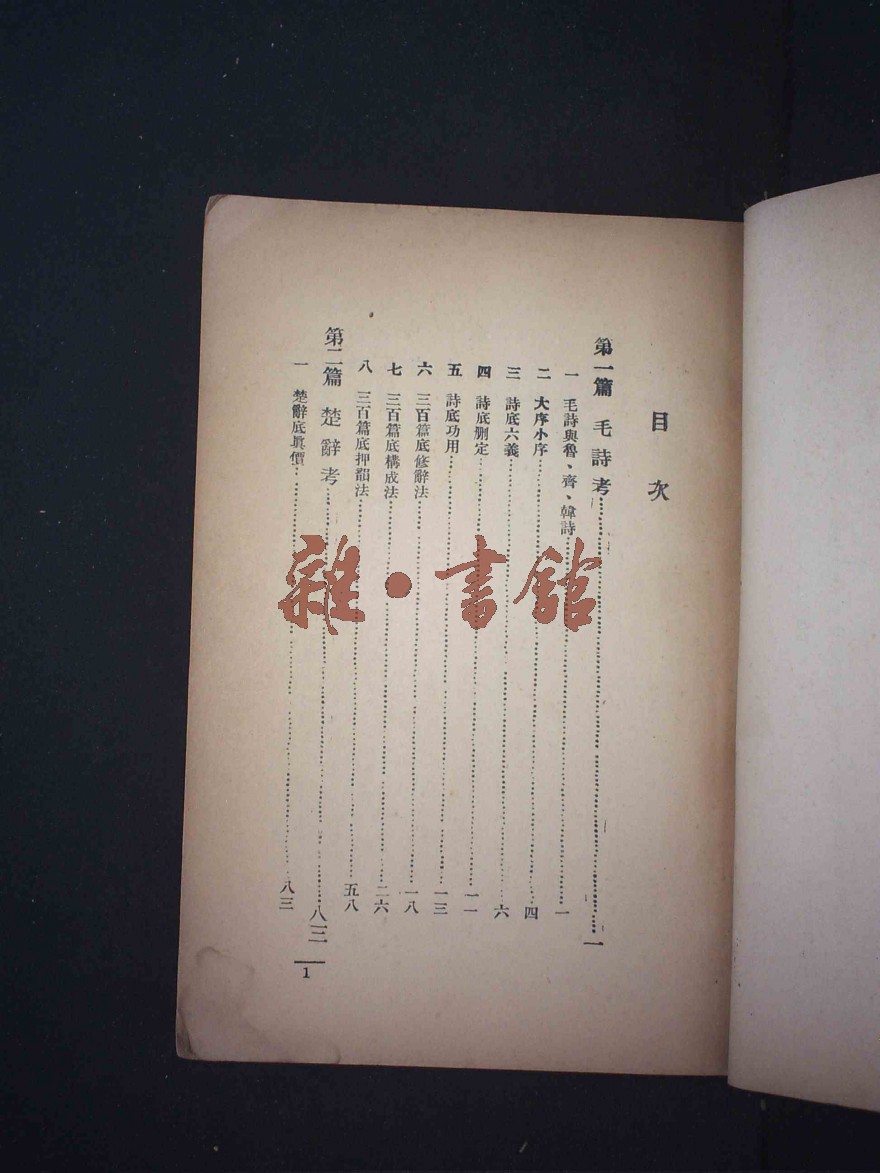 目次
第一篇 毛詩考……一
一 毛詩與魯、齊、韓詩……一
二 大序小序……四
三 詩底六義……六
四 詩底删定……一一
五 詩底功用……一三
六 三百篇底修辭法……一八
七 三百篇底構成法……二六
八 三百篇底押韻法……五八
第二篇 楚辭考……八三
一 楚辭底眞價……八三
1
雜·書館